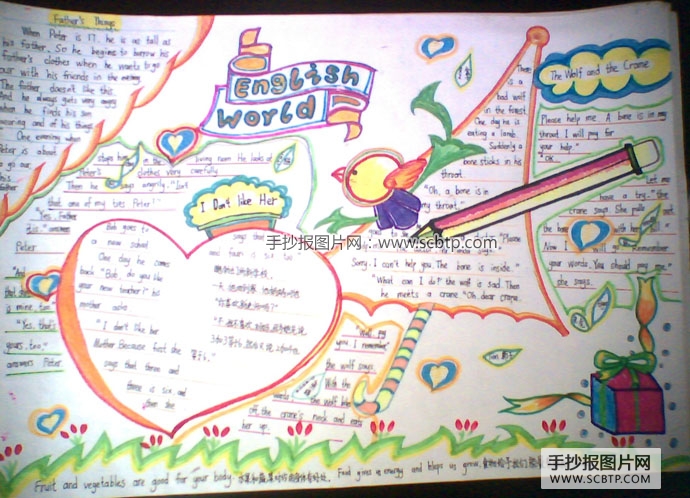 Father's Things
When Peter is 17. he is as tall as
his father. So he begins to borrow his
Father's clothes when he wants to go
our with his friends in the evening
The father, doesn't like this.
he always gets very angry
when finds his son
wearing and of his things.
One evening when
Peter is about
to go our,
father
stops him in the living room He looks at
Peter's clothes very carefully.
Then he says angrily. "Isn't
that one of my ties Peter?"
"Yes Father
it is" answers
Peter
"And
is mine, too
"Yes. that's
yours, too."
answers Peter.
English
World
I Don't Like Her
Bob goes to
a new school.
One day he comes
back "Bob, do you like
your new teacher?" his
mother asks
"I don't like her
Mother. Because first she
says that three and
three is six, and
then she
says that
and four is six too
The Wolf and the Crane
There
is a
bad wolf
in the forest
One day he is
eating a lamb.
Suddenly a
bone sticks in his
throat.
"Oh, a bone is in
my throat."
goes to
"Please
Sorry. I can't help you. The bone is inside.
What can I do? the wolf is sad. Then
he meets a crane. "Oh, dear crane.
Please help me. A bone is in my
throat. I will pay for
your help."
"OK
Let me
have a try." the
crane says. She pulls out
the bone with her
Now I will remember
your words. You should pay me."
she says.
"Well, pay
you. I remember"
the wolf says.
With the
words the wolf bites
off the crane's neck and eats
her up.
Fruit and vegetables are good for your body.
Food gives us energy and helps us grow.
手抄报图片网：www.scbtp.com
手抄报图片网
WWW.SCBTP.COM